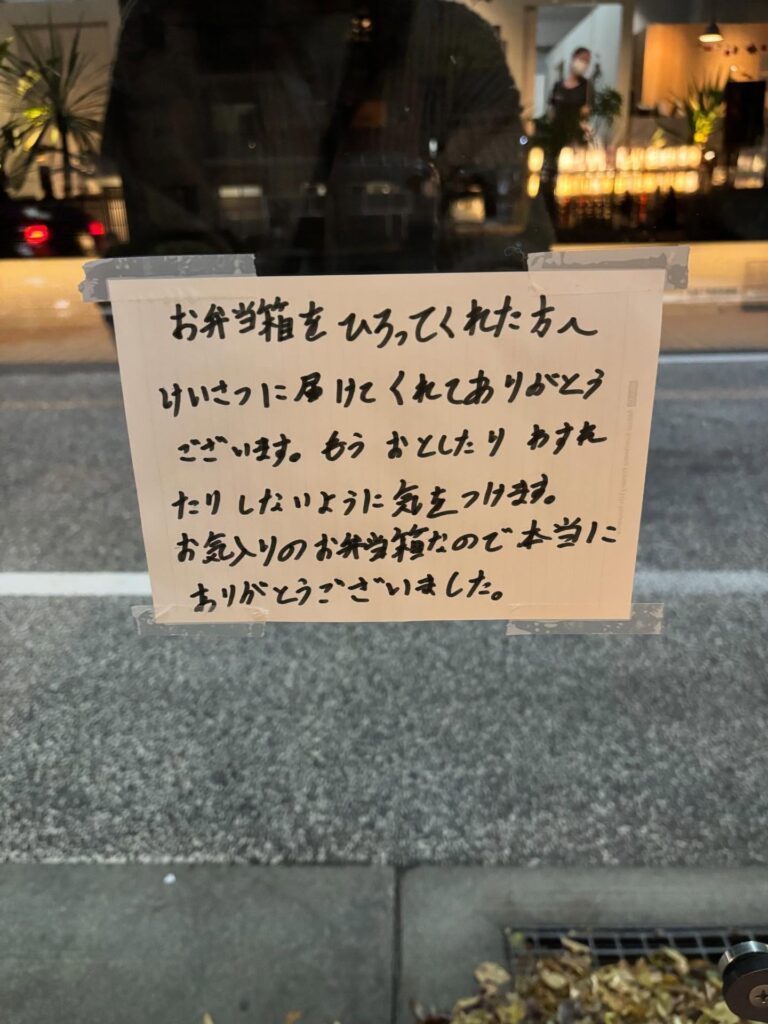 お弁当箱をひろってくれた方へ
けいさつに届けてくれてありがとう
ございます。もう おとしたり わすれ
たり しないように気をつけます。
お気入りのお弁当箱なので本当に
ありがとうございました。